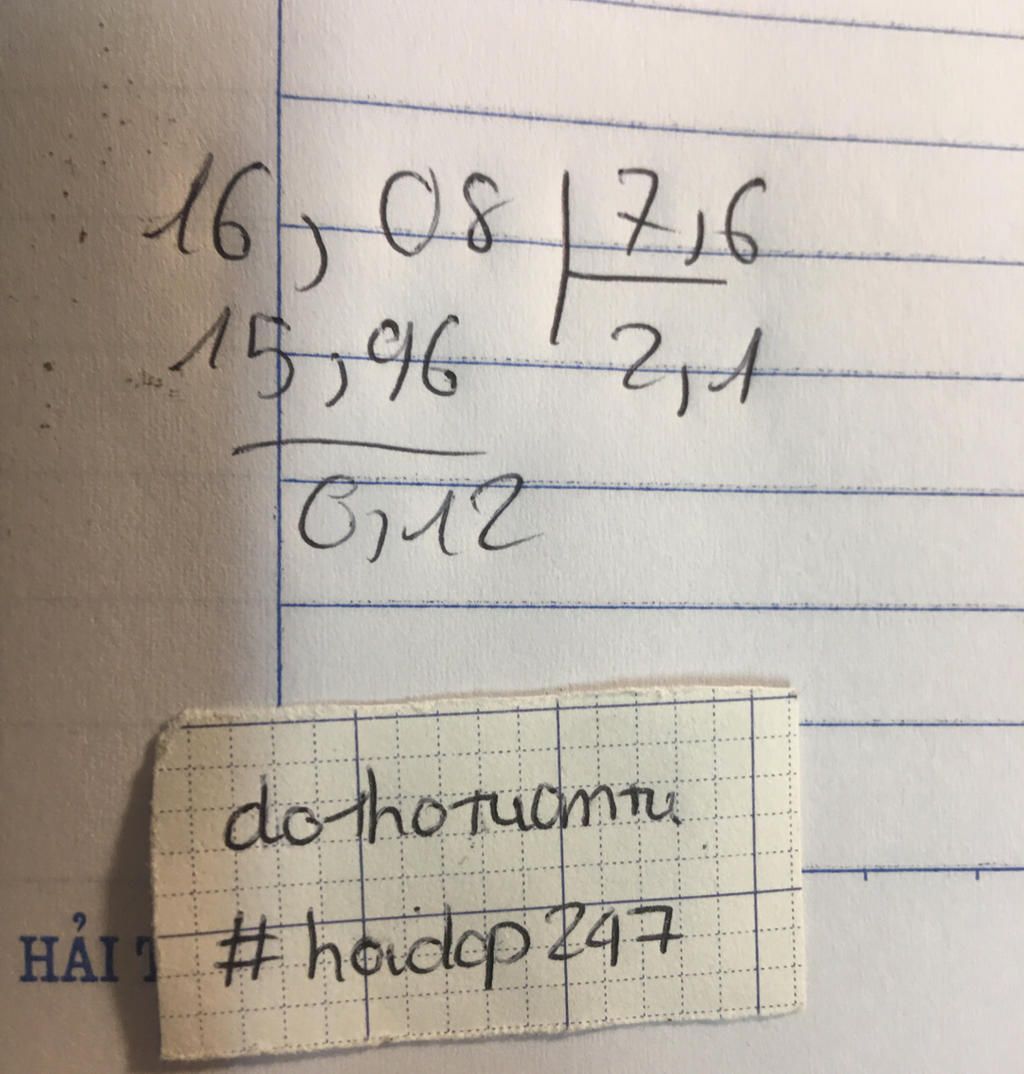 16,08 7,6
15,96 2,1
0,12
dothotuantu
#hoidap247
HẢI T